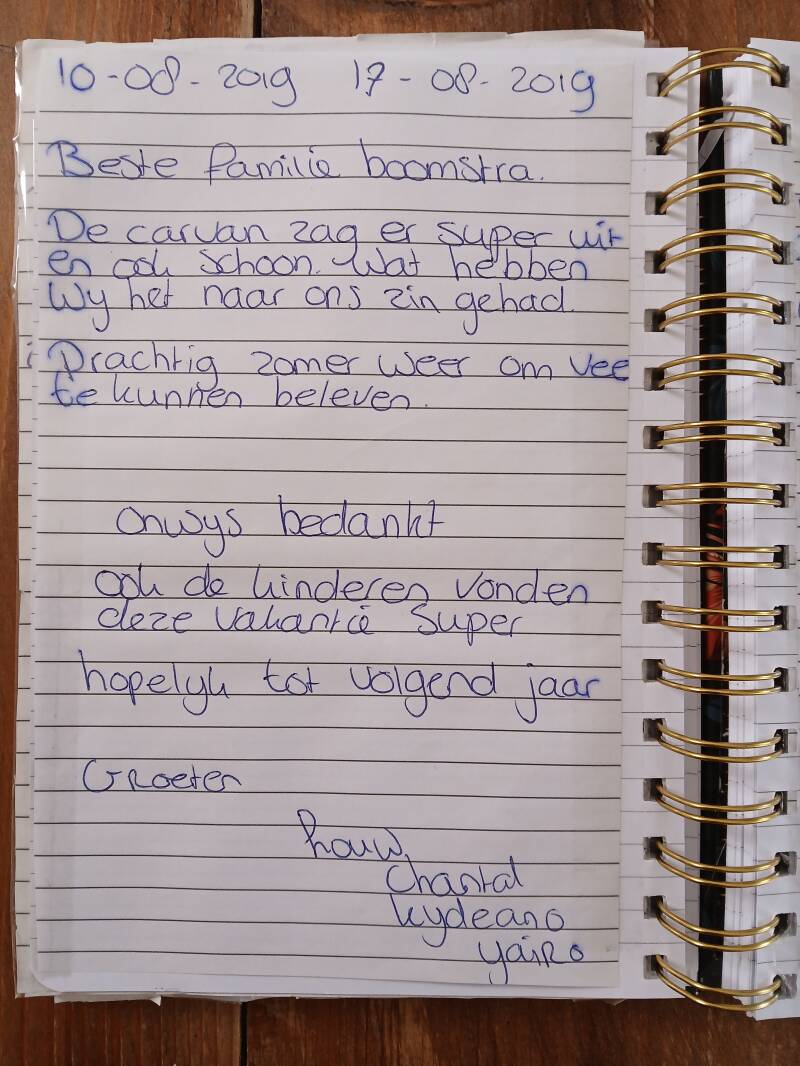 10-08-2019 17-08-2019
Beste familie boomstra.
De carvan zag er super uit
en ook schoon. Wat hebben
Wy het naar ons zin gehad.
Prachtig zomer weer om vee
te kunnen beleven.
onwys bedankt
ook de kinderen vonden
deze vakantie super
hopelyk tot volgend jaar
Groeten
Rouw,
Chantal
kydeano
yaiRo